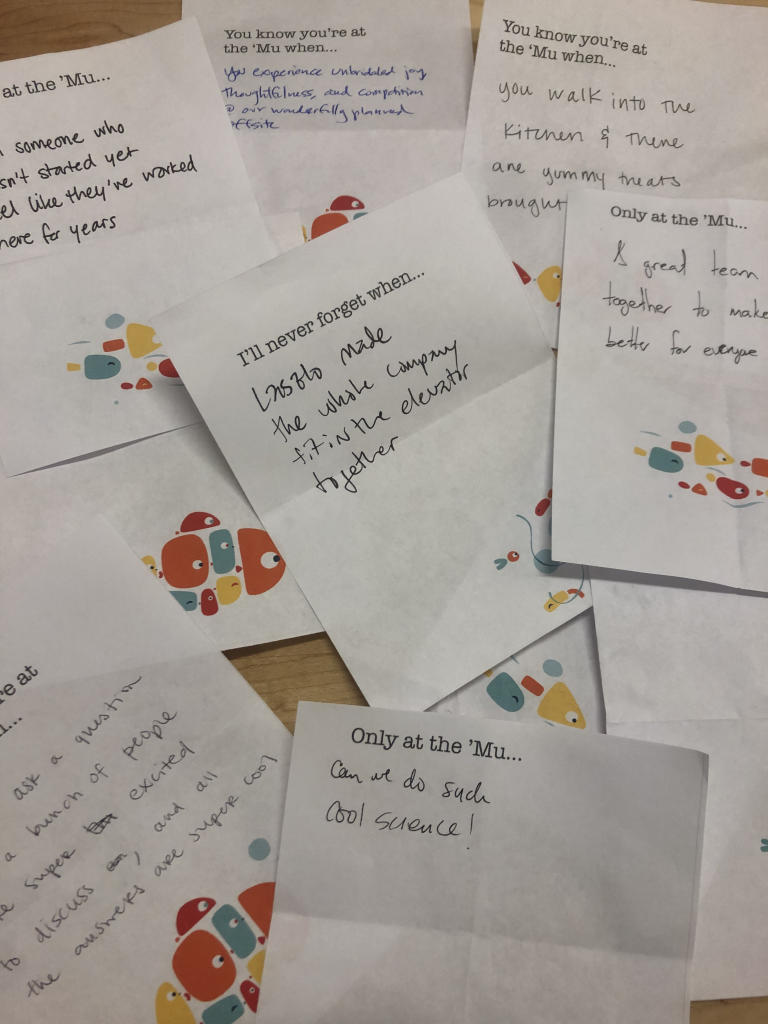 at the 'Mu...
someone who
sn't started yet
el like they've worked
here for years
You know you're at
the 'Mu when...
You experience unbridled joy,
thoughtfulness, and competition
@ our wonderfully planned
offsite
You know you're at
the 'Mu when...
you walk into the
kitchen & there
are yummy treats
brought
Only at the 'Mu...
great team
together to make
better for everyone
I'll never forget when...
Laszlo made
the whole company
fit in the elevator
together
're at
ask a question
a bunch of people
super excited
to discuss, and all
the answers are super cool
Only at the 'Mu...
Can we do such
cool science!